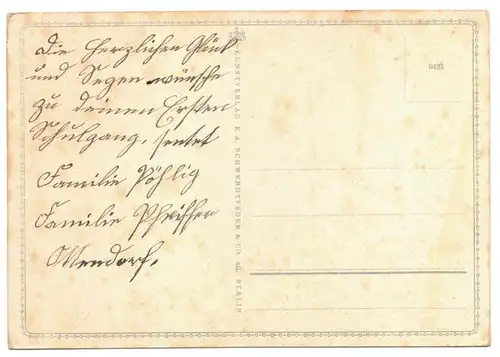 Die Herzlichen Glück
und Segen wünsche
zu deinen Ersten
Schulgang, sentet
Familie Pöhlig
Familie Pfeiffer
Ottendorf.
KUNSTVERLAG E.A. SCHWERDTFEGER & CO. AG. BERLIN